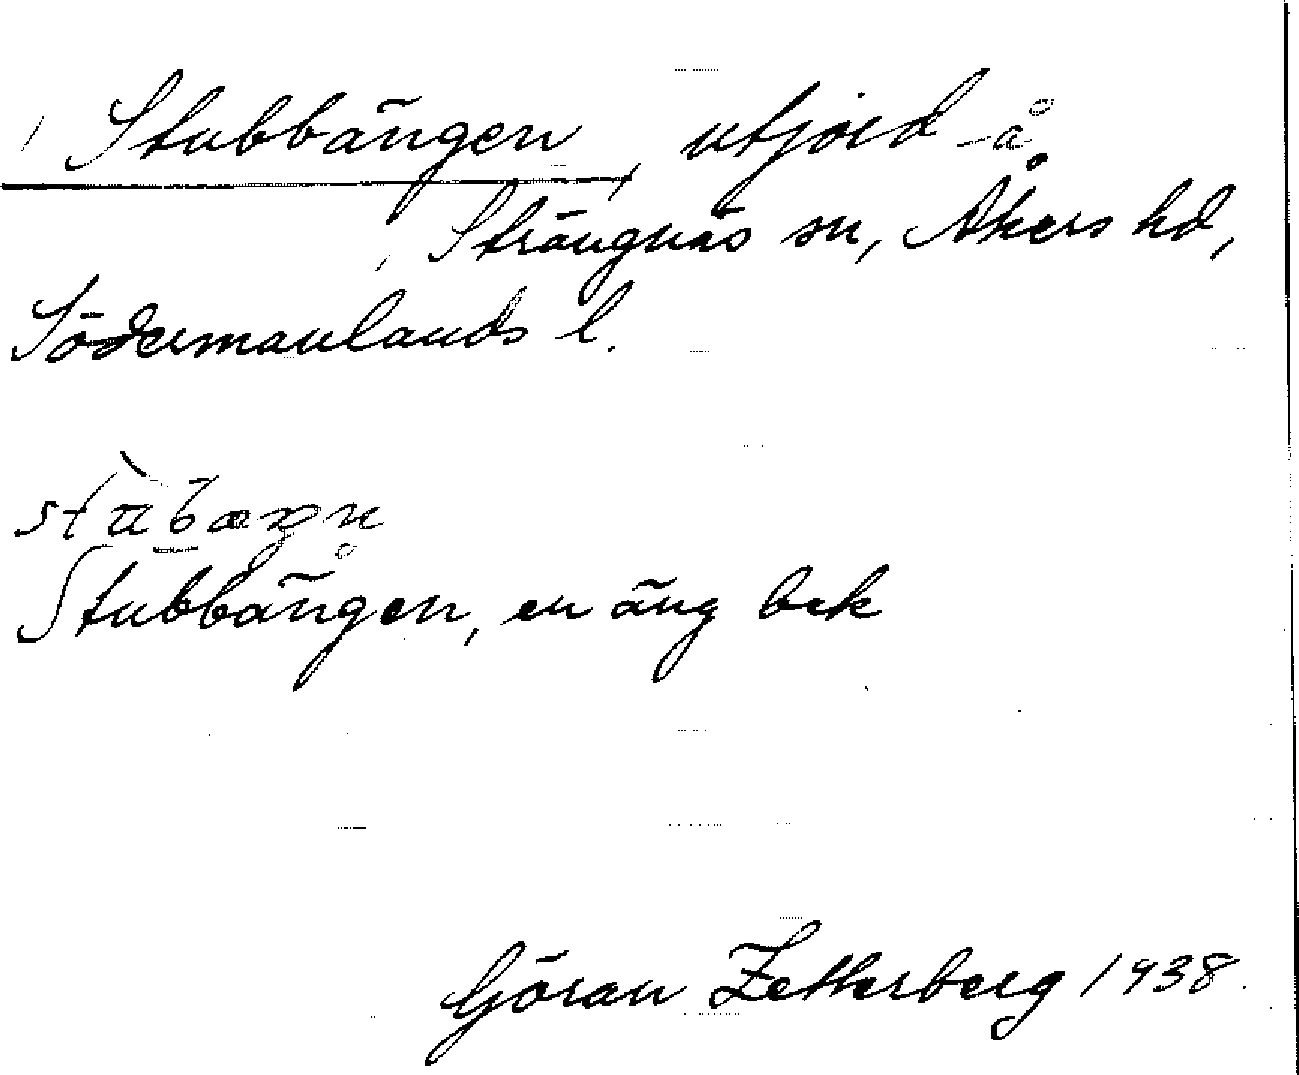 Stubbängen, utjord å
Strängnäs sn, Åkers hd,
Södermanlands l.
Stubbängen, en äng bek
Göran Zetterberg 1938.